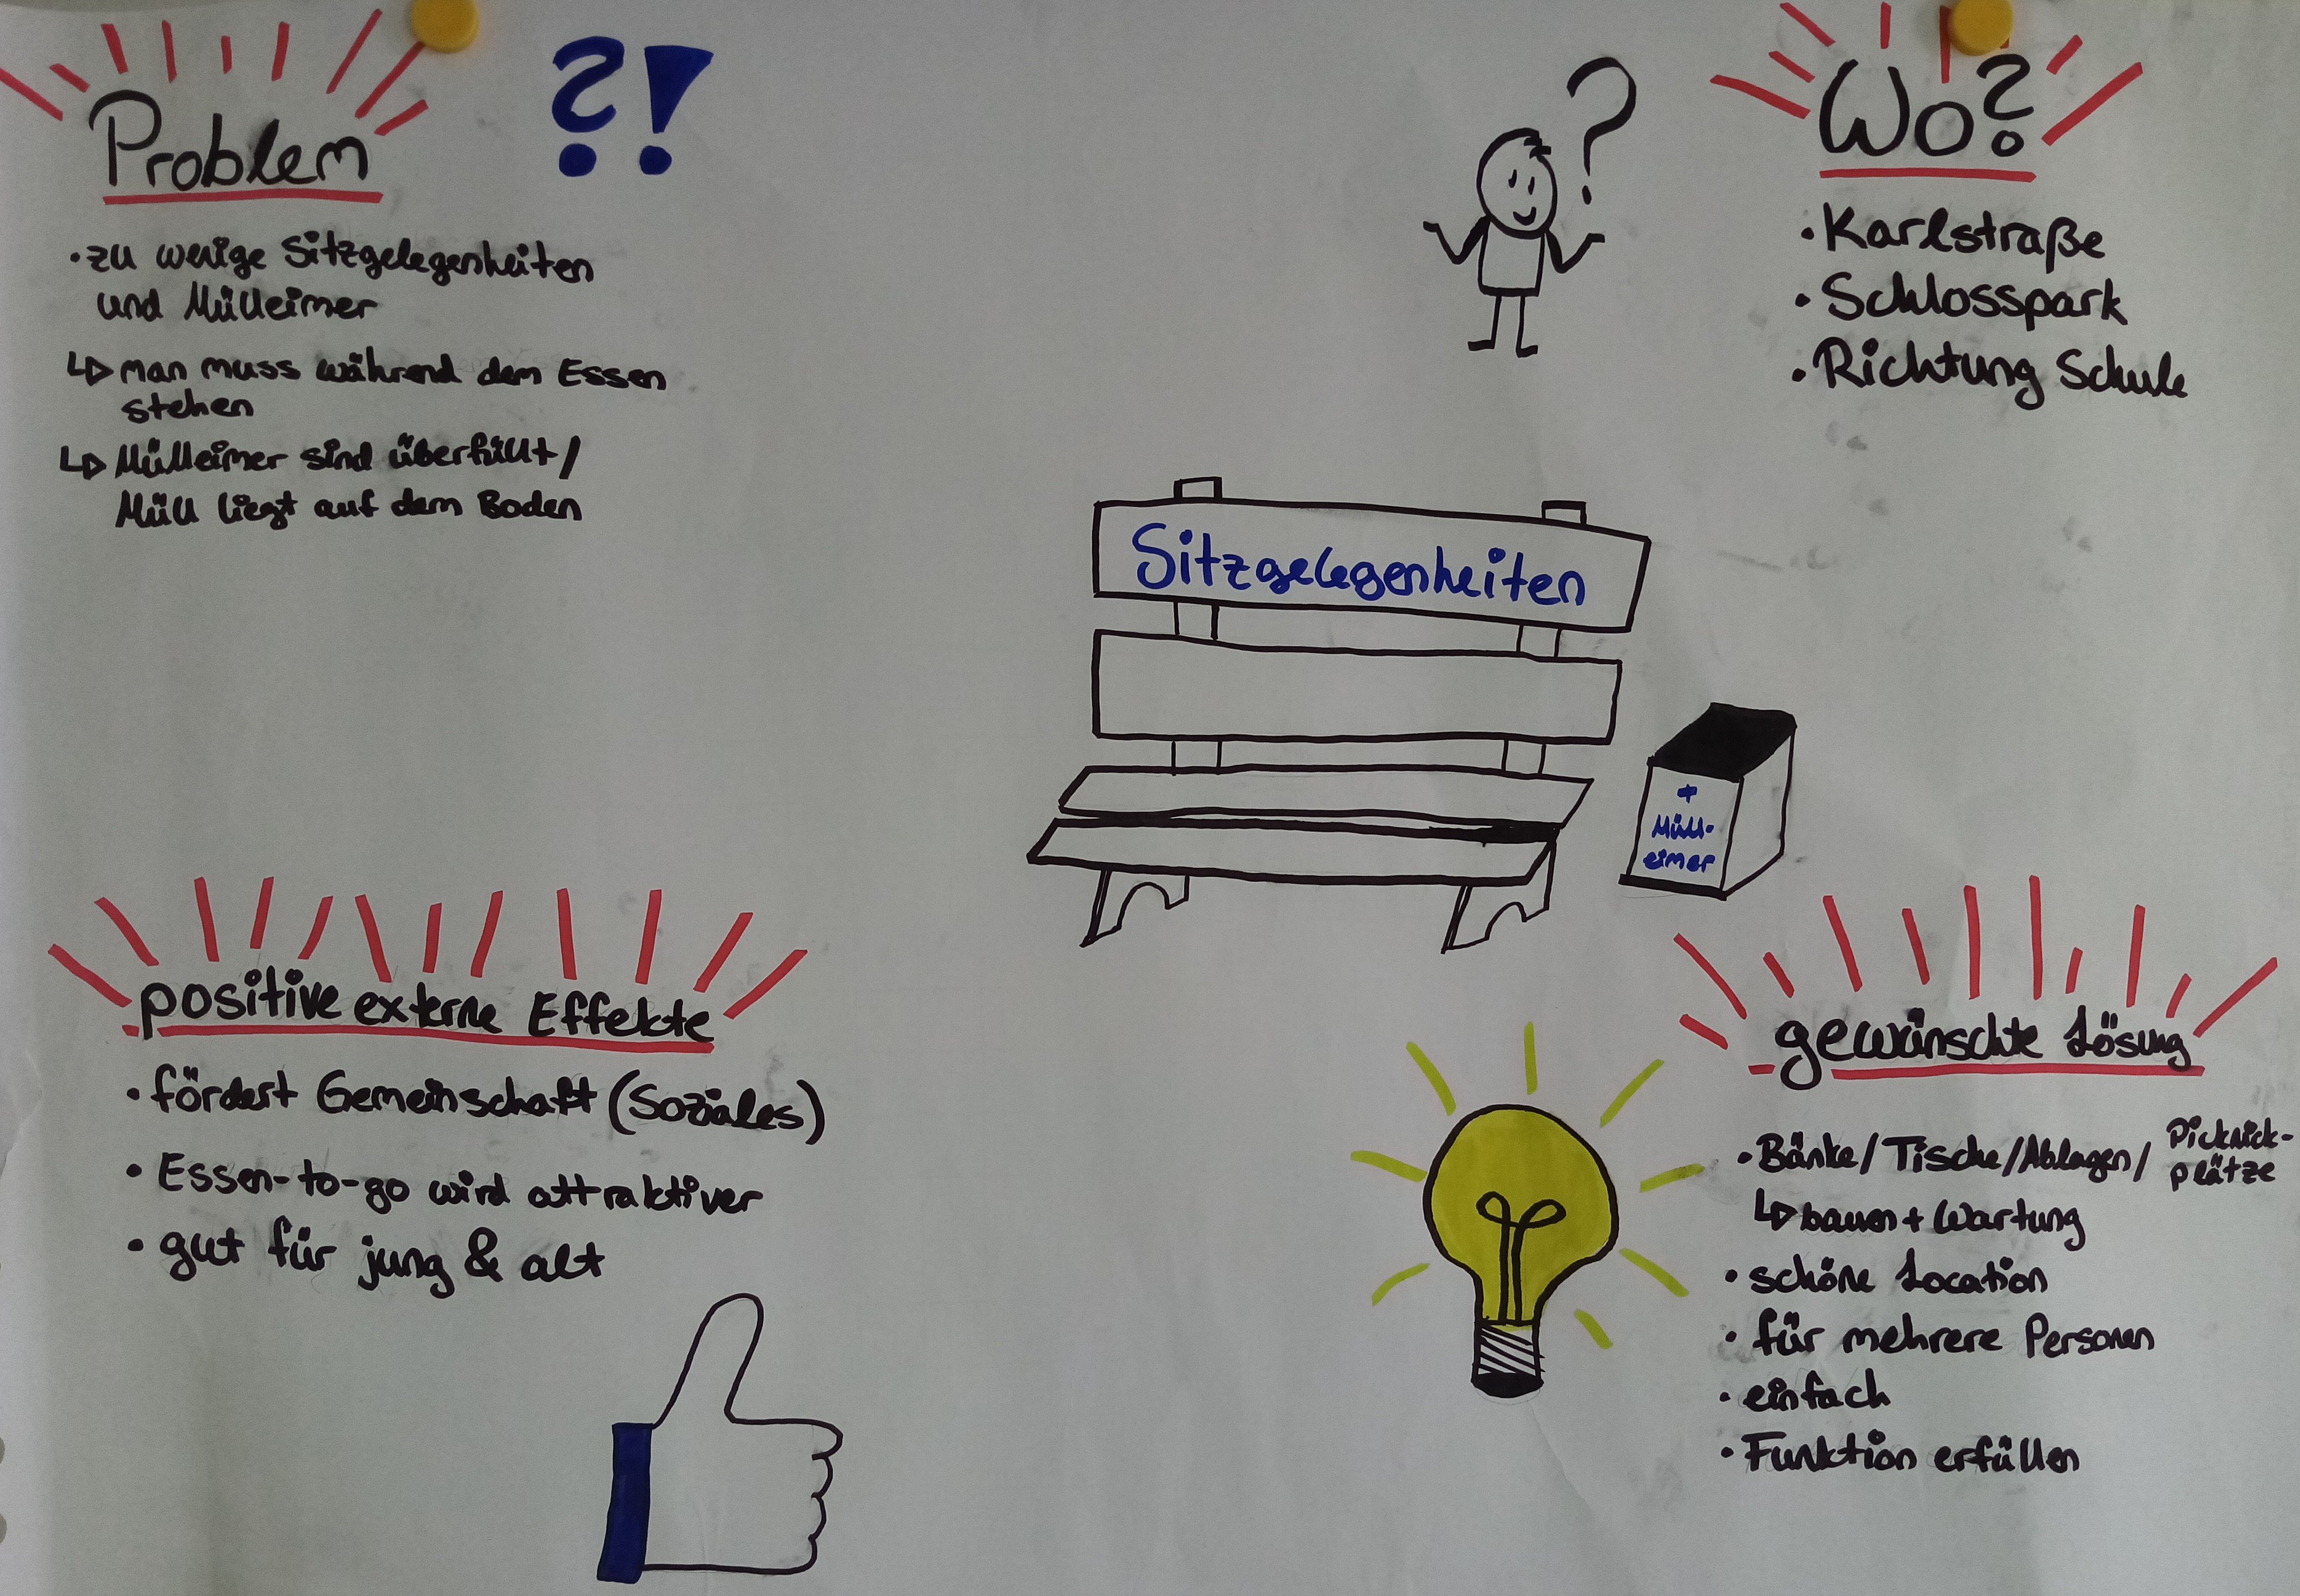 Problem
?!
• zu wenige Sitzgelegenheiten
und Mülleimer
↳ man muss während dem Essen
stehen
↳ Mülleimer sind überfüllt/
Müll liegt auf dem Boden
?
Wo?
• Karlstraße
• Schlosspark
• Richtung Schule
Sitzgelegenheiten
+
Müll-
eimer
positive externe Effekte
• fördert Gemeinschaft (Soziales)
• Essen-to-go wird attraktiver
• gut für jung & alt
gewünschte Lösung
• Bänke/Tische/Ablagen/ Picknick-
plätze
↳ bauen + Wartung
• schöne Location
• für mehrere Personen
• einfach
• Funktion erfüllen